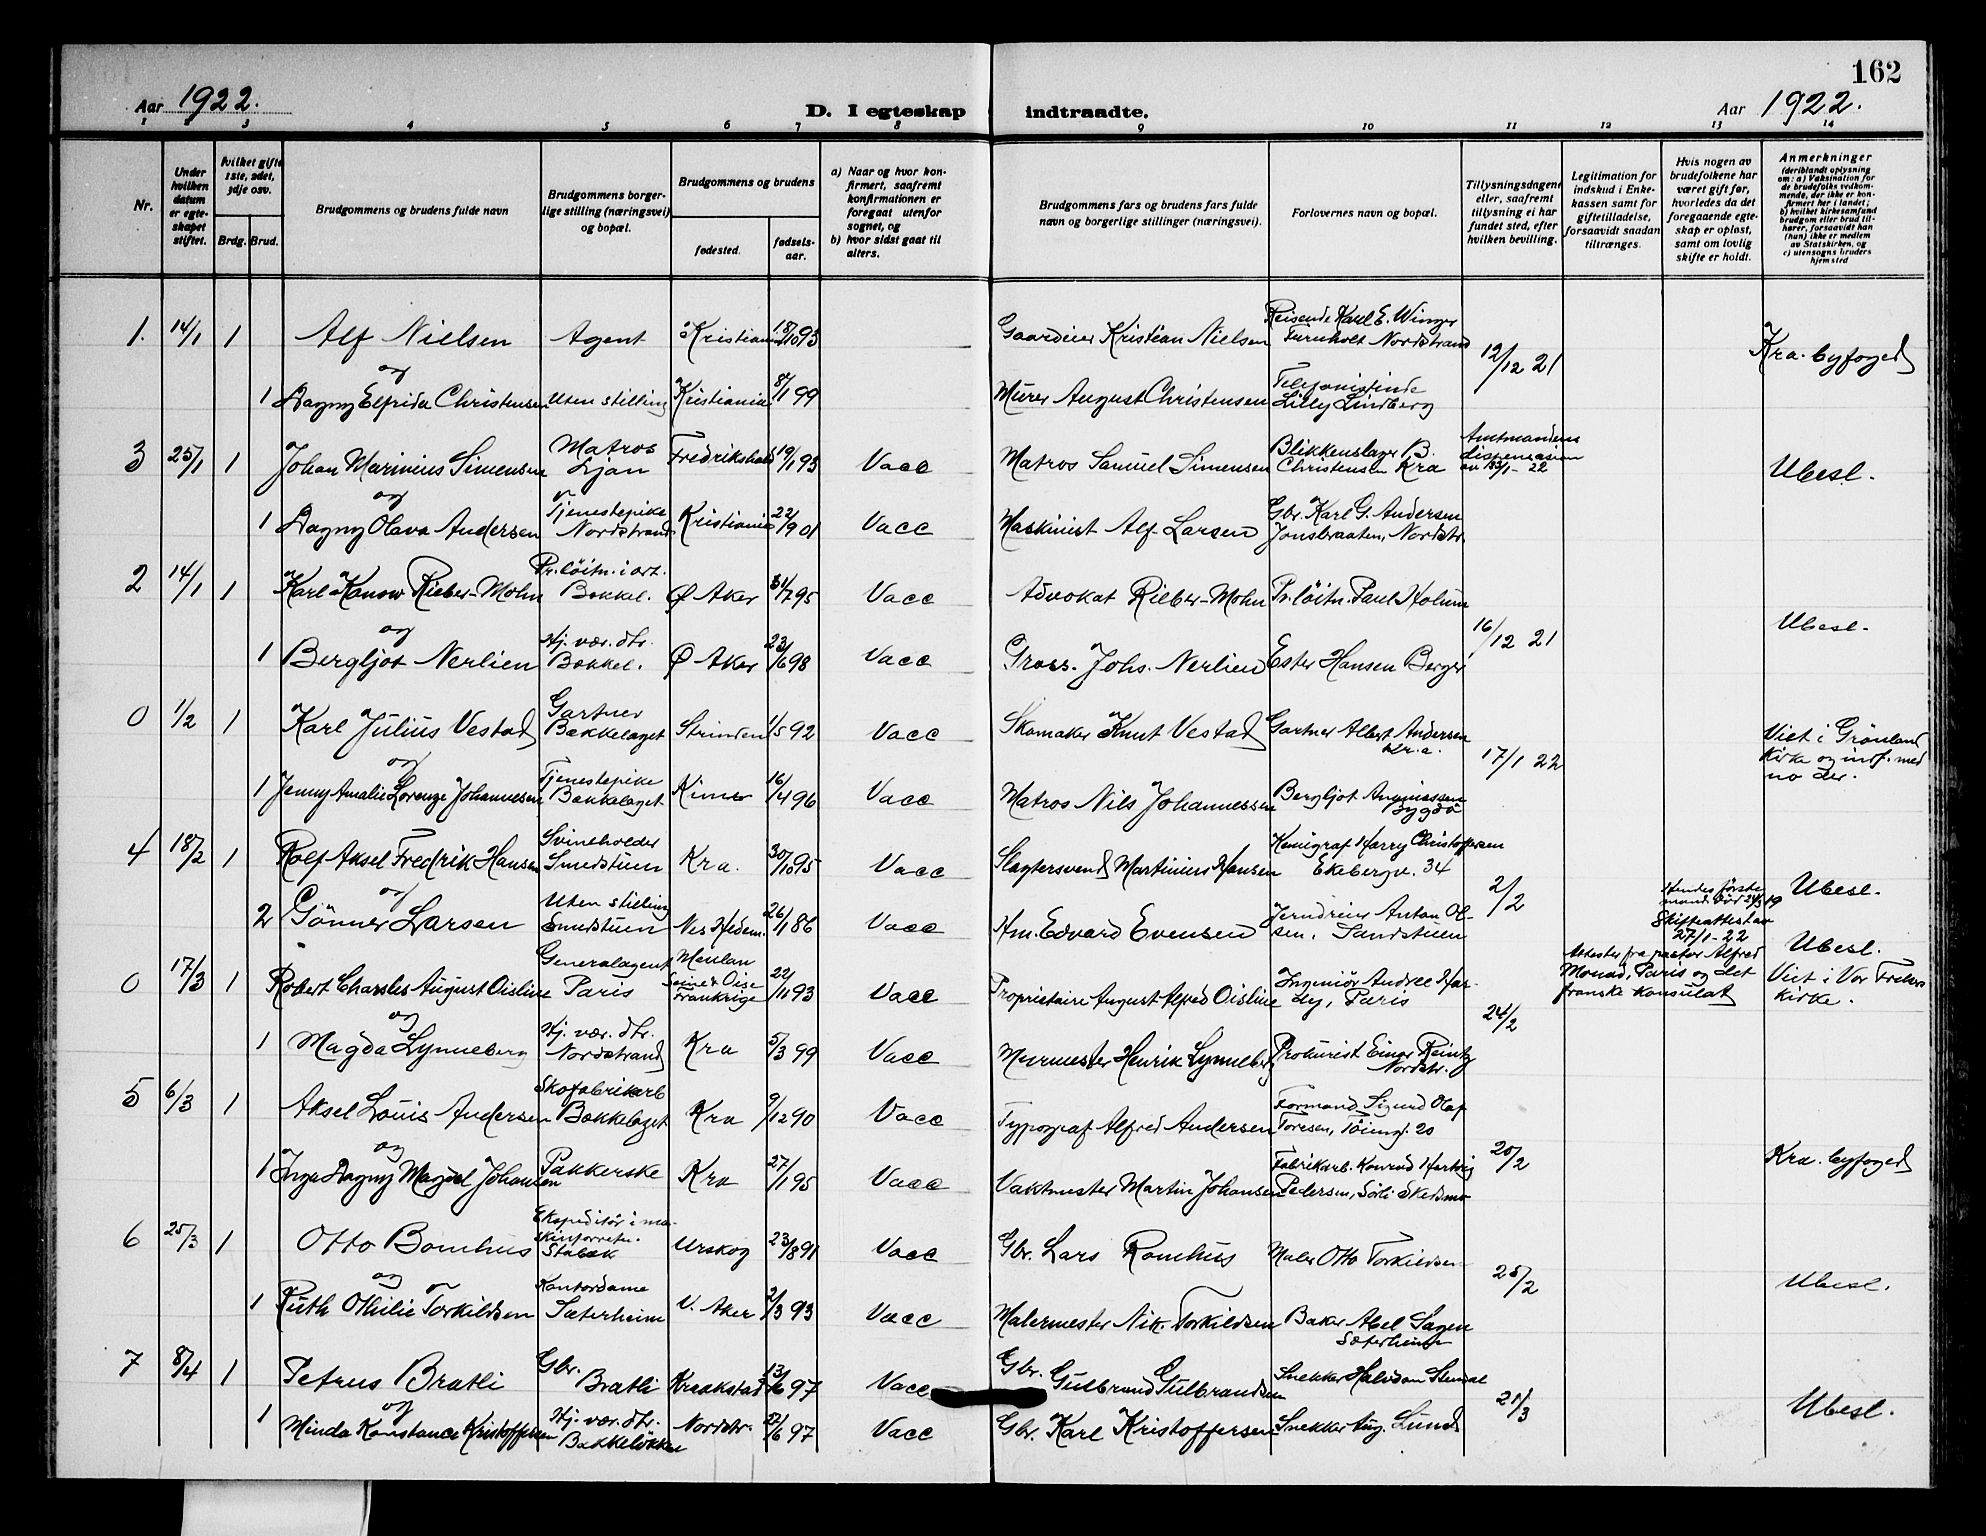 162
Aar 1922.
D. I egteskap indtraadte.
Aar 1922.
1 2 3 4 5 6 7 8 9 10 11 12 13 14
Nr.
Under hvilken datum er egteskapet stiftet.
Hvilket gifte 1ste, 2det, 3dje osv.
Brdg. Brud.
Brudgommens og brudens fulde navn
Brudgommens borgerlige stilling (næringsvei) og bopæl.
Brudgommens og brudens
fødested.
fødselsaar.
a) Naar og hvor konfirmert, saafremt konfirmationen er foregaat utenfor sognet, og
b) hvor sidst gaat til alters.
Brudgommens fars og brudens fars fulde navn og borgerlige stillinger (næringsvei).
Forlovernes navn og bopæl.
Tillysningsdagene eller, saafremt tillysning ei har fundet sted, efter hvilken bevilling.
Legitimation for indskud i Enkekassen samt for giftetilladelse, forsaavidt saadan tiltrænges.
Hvis nogen av brudefolkene har været gift før, hvorledes da det foregaaende egteskap er opløst, samt om lovlig skifte er holdt.
Anmerkninger (deriblandt oplysning om: a) Vaksination for de brudefolks vedkommende, der ikke er konfirmert her i landet; b) hvilket kirkesamfund brudgom eller brud tilhører, forsaavidt han (hun) ikke er medlem av Statskirken, og c) utensogns bruders hjemsted
1. 14/1 1 Alf Nielsen Agent Kristiania 18/10 93 Gaardeier Kristian Nielsen Reisende Karl E. Winger Furuholt Nordstrand 12/12 21 Kra. byfoged
og
1 Dagny Elfrida Christensen Uten stilling Kristiania 8/1 99 Murer August Christensen Telefonistinde Lilly Lindberg
3 25/1 1 Johan Marinius Simensen Matros Ljan Fredrikshald 19/1 93 Vacc Matros Samuel Simensen Blikkenslager B. Christensen Kra Amtmandens dispensasion av 23/1-22 Ubesl.
og
1 Dagny Olava Andersen Tjenestepike Nordstrand Kristiania 22/9 01 Vacc Maskinist Alf Larsen Gbr. Karl G. Andersen Jonsbraaten, Nordstr.
2 14/1 1 Karl Hanow Rieber-Mohn Pr.løitn. i art. Bekkel. Ø Aker 31/7 95 Vacc Advokat Rieber-Mohn Pr.løitn. Paul Holum 16/12 21 Ubesl.
og
1 Bergljot Nerlien Hj. vær. dtr. Bekkel. Ø Aker 23/6 98 Vacc Gross. Johs. Nerlien Ester Hansen Berger
0 1/2 1 Karl Julius Vestad Gartner Bækkelaget Strinden 1/5 92 Vacc Skomaker Knut Vestad Gartner Albert Andersen Kr.a. 17/1 22 Viet i Grønland Kirke og inf. med no der.
og
1 Jenny Amalie Lorenze Johannesen Tjenestepike Bækkelaget 16/4 96 Vacc Matros Nils Johannessen Bergljot Bygdø
4 18/2 1 Rolf Aksel Fredrik Hansen Svineholder Smedstuen Kra. 30/10 95 Vacc Slagtersvend Martinius Hansen Kemigraf Harry Christoffersen Ekebergv. 34 2/2 Ubesl.
og
2 Gönner Larsen Uten stilling Smedstuen Nes Hedem. 26/1 86 Vacc Hm. Edvard Evensen Jerndreier Anton Olsen. Sandstuen Hendes første mand død 24/3 19 Skifteattest av 27/1-22
0 17/3 1 Robert Charsles August Oisline Generalagent Paris Meulan Seine & Oise Frankrige 22/11 93 Vacc Proprietaire August Alfred Oisline Ingeniør Andree Hardy, Paris 24/2 Attester fra pastor Alfred Monod, Paris og det franske konsulat Ubesl. Viet i Vor Frelsers kirke.
og
1 Magda Lynneberg Hj. vær. dtr. Nordstrand Kra 5/3 99 Vacc Murmester Henrik Lynneberg Prokurist Einar Reintz Nordstr.
5 6/3 1 Aksel Louis Andersen Skofabrikarb Bækkelaget Kra 9/12 90 Vacc Typograf Alfred Andersen Formand Sigurd Olaf Toresen, Töieng. 20 20/2 Kra. byfoged
og
1 Inga Dagny Magdel Johansen Pakkerske Kra 27/1 95 Vacc Vaktmester Martin Johansen Fabrikarb. Konrad Hartvig Pedersen, Sørli Skedsmo
6 25/3 1 Otto Bomhus Ekspeditör i maskinforretn. Stabæk Urskog 23/8 91 Vacc Gbr. Lars Romhus Maler Otto Torkildsen 25/2 Ubesl.
og
1 Ruth Othilie Torkildsen Kontordame Sæterheim V. Aker 2/3 93 Vacc Malermester Nik. Torkildsen Baker Abel Sagen Sæterheim
7 8/4 1 Petrus Bratli Gbr. Bratli Kraakstad 13/6 97 Vacc Gbr. Gulbrand Gulbrandsen Snekker Halvdan 21/3 Ubesl.
og
1 Minda Konstance Kristoffersen Hj. vær. dtr. Bakkeløkken Nordstr. 22/6 97 Vacc Gbr. Karl Kristoffersen Snekker Aug. Lund